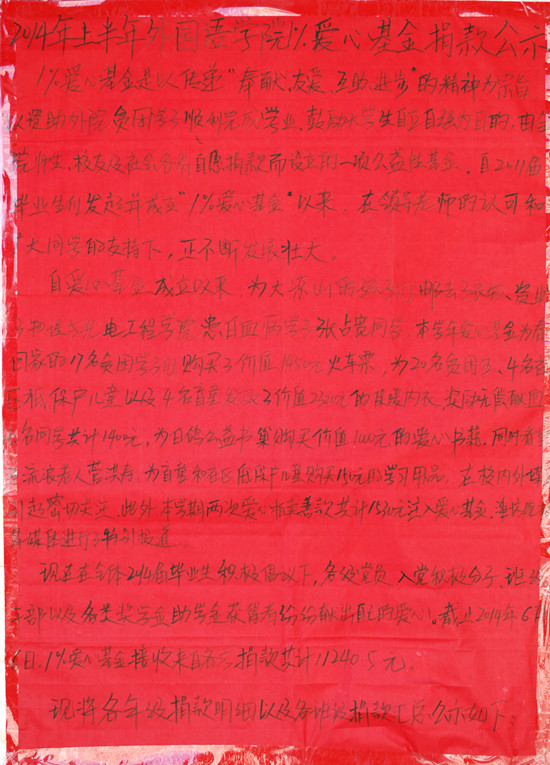 2014年上半年外国语学院1%爱心基金捐款公示
1%爱心基金是以传递"奉献、友爱、互助、进步"的精神为宗旨
以资助外院贫困学子顺利完成学业、鼓励大学生自立自强为目的,由全
院师生、校友及社会各界自愿捐款而设立的一项公益性基金。自2011届
毕业生们发起并成立"1%爱心基金"以来,在领导老师的认可和
大同学的支持下,正不断发展壮大。
自爱心基金成立以来,为大凉山
光电工程学院患白血病学子张占宽同学。本学年爱心基金为春
回家的17名贫困学子购买了价值1450元火车票,为20名贫困生、4名
低保户儿童以及4名盲童发放了价值2320元的保暖内衣,
名同学共计1900元,为日鸽公益书巢购买价值1000元的爱心书籍。同时看
流浪老人 ,为盲童和 低保户儿童购买150元的学习用品。在校内外
引起密切关注。此外,本学期两次爱心 善款共计1530元注入爱心基金,
媒体进行了特别报道。
现正在全体2014届毕业生积极倡议下,各级党员、入党积极分子、班
部以及各类奖学金助学金获得者纷纷献出自己的爱心。截止2014年6
日,1%爱心基金接收来自各 捐款共计11240.5元。
现将各年级捐款明细以及各班级捐款汇总公示如下: